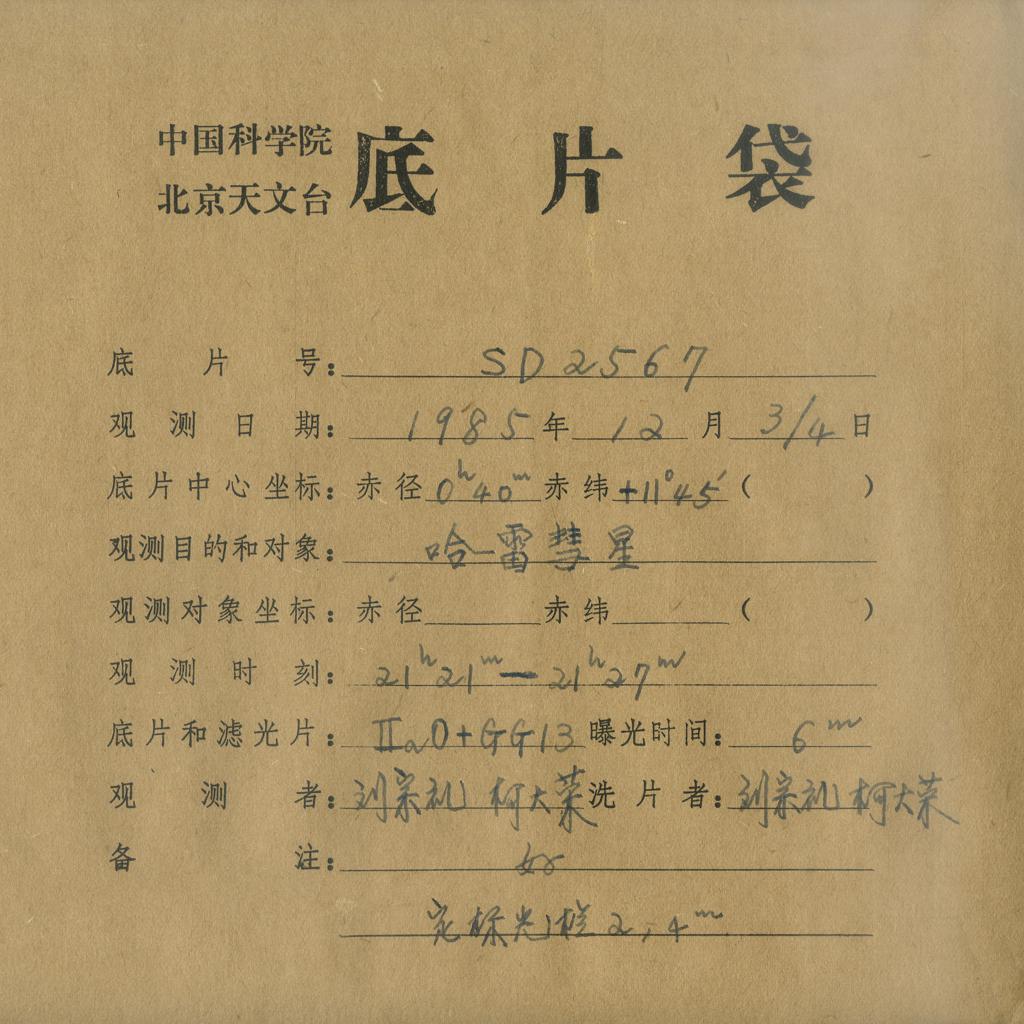 中国科学院
北京天文台
底片袋
底片号：SD2567
观测日期：1985年12月3/4日
底片中心坐标：赤径0ʰ40ᵐ赤纬+11°45′（ ）
观测目的和对象：哈雷彗星
观测对象坐标：赤径 赤纬 （ ）
观测时刻：21ʰ21ᵐ—21ʰ27ᵐ
底片和滤光片：ⅡaO+GG13 曝光时间：6ᵐ
观测者：刘宗礼 柯大荣 洗片者：刘宗礼 柯大荣
备注：好
定标光栏2，4ᵐ